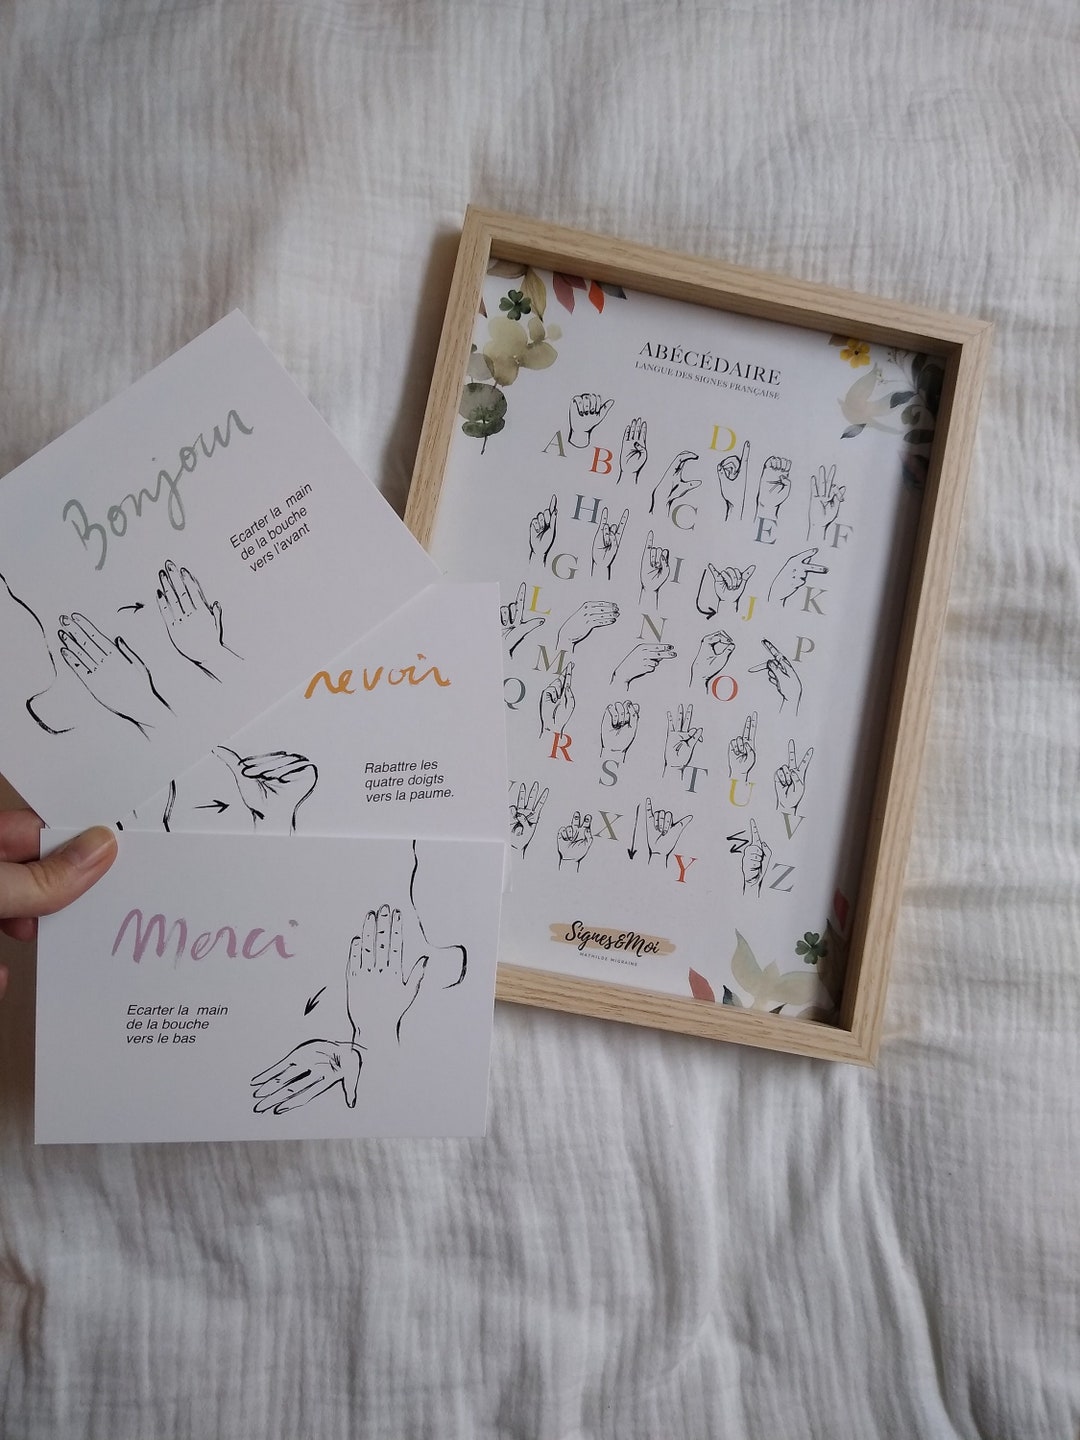 Bonjour
Ecarter la main
de la bouche
vers l'avant
revoir
Rabattre les
quatre doigts
vers la paume.
Merci
Ecarter la main
de la bouche
vers le bas
ABÉCÉDAIRE
LANGUE DES SIGNES FRANÇAISE
A B C D E F
G H I J K
L M N O P
Q R S T U V
X Y Z
Signes&Moi
MATHILDE MIGRAINE